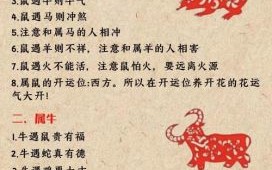 4.鼠遇马则冲煞
5.注意和属马的人相冲
6.鼠遇羊则不祥，注意和属羊的人相害
7.鼠遇火不能活，注意鼠怕火，要远离火源
8.属鼠的开运位:西方。所以在开运位养开花的花运气大开!
二. 属牛
1.牛遇鼠贵有福
2.牛遇蛇真有德